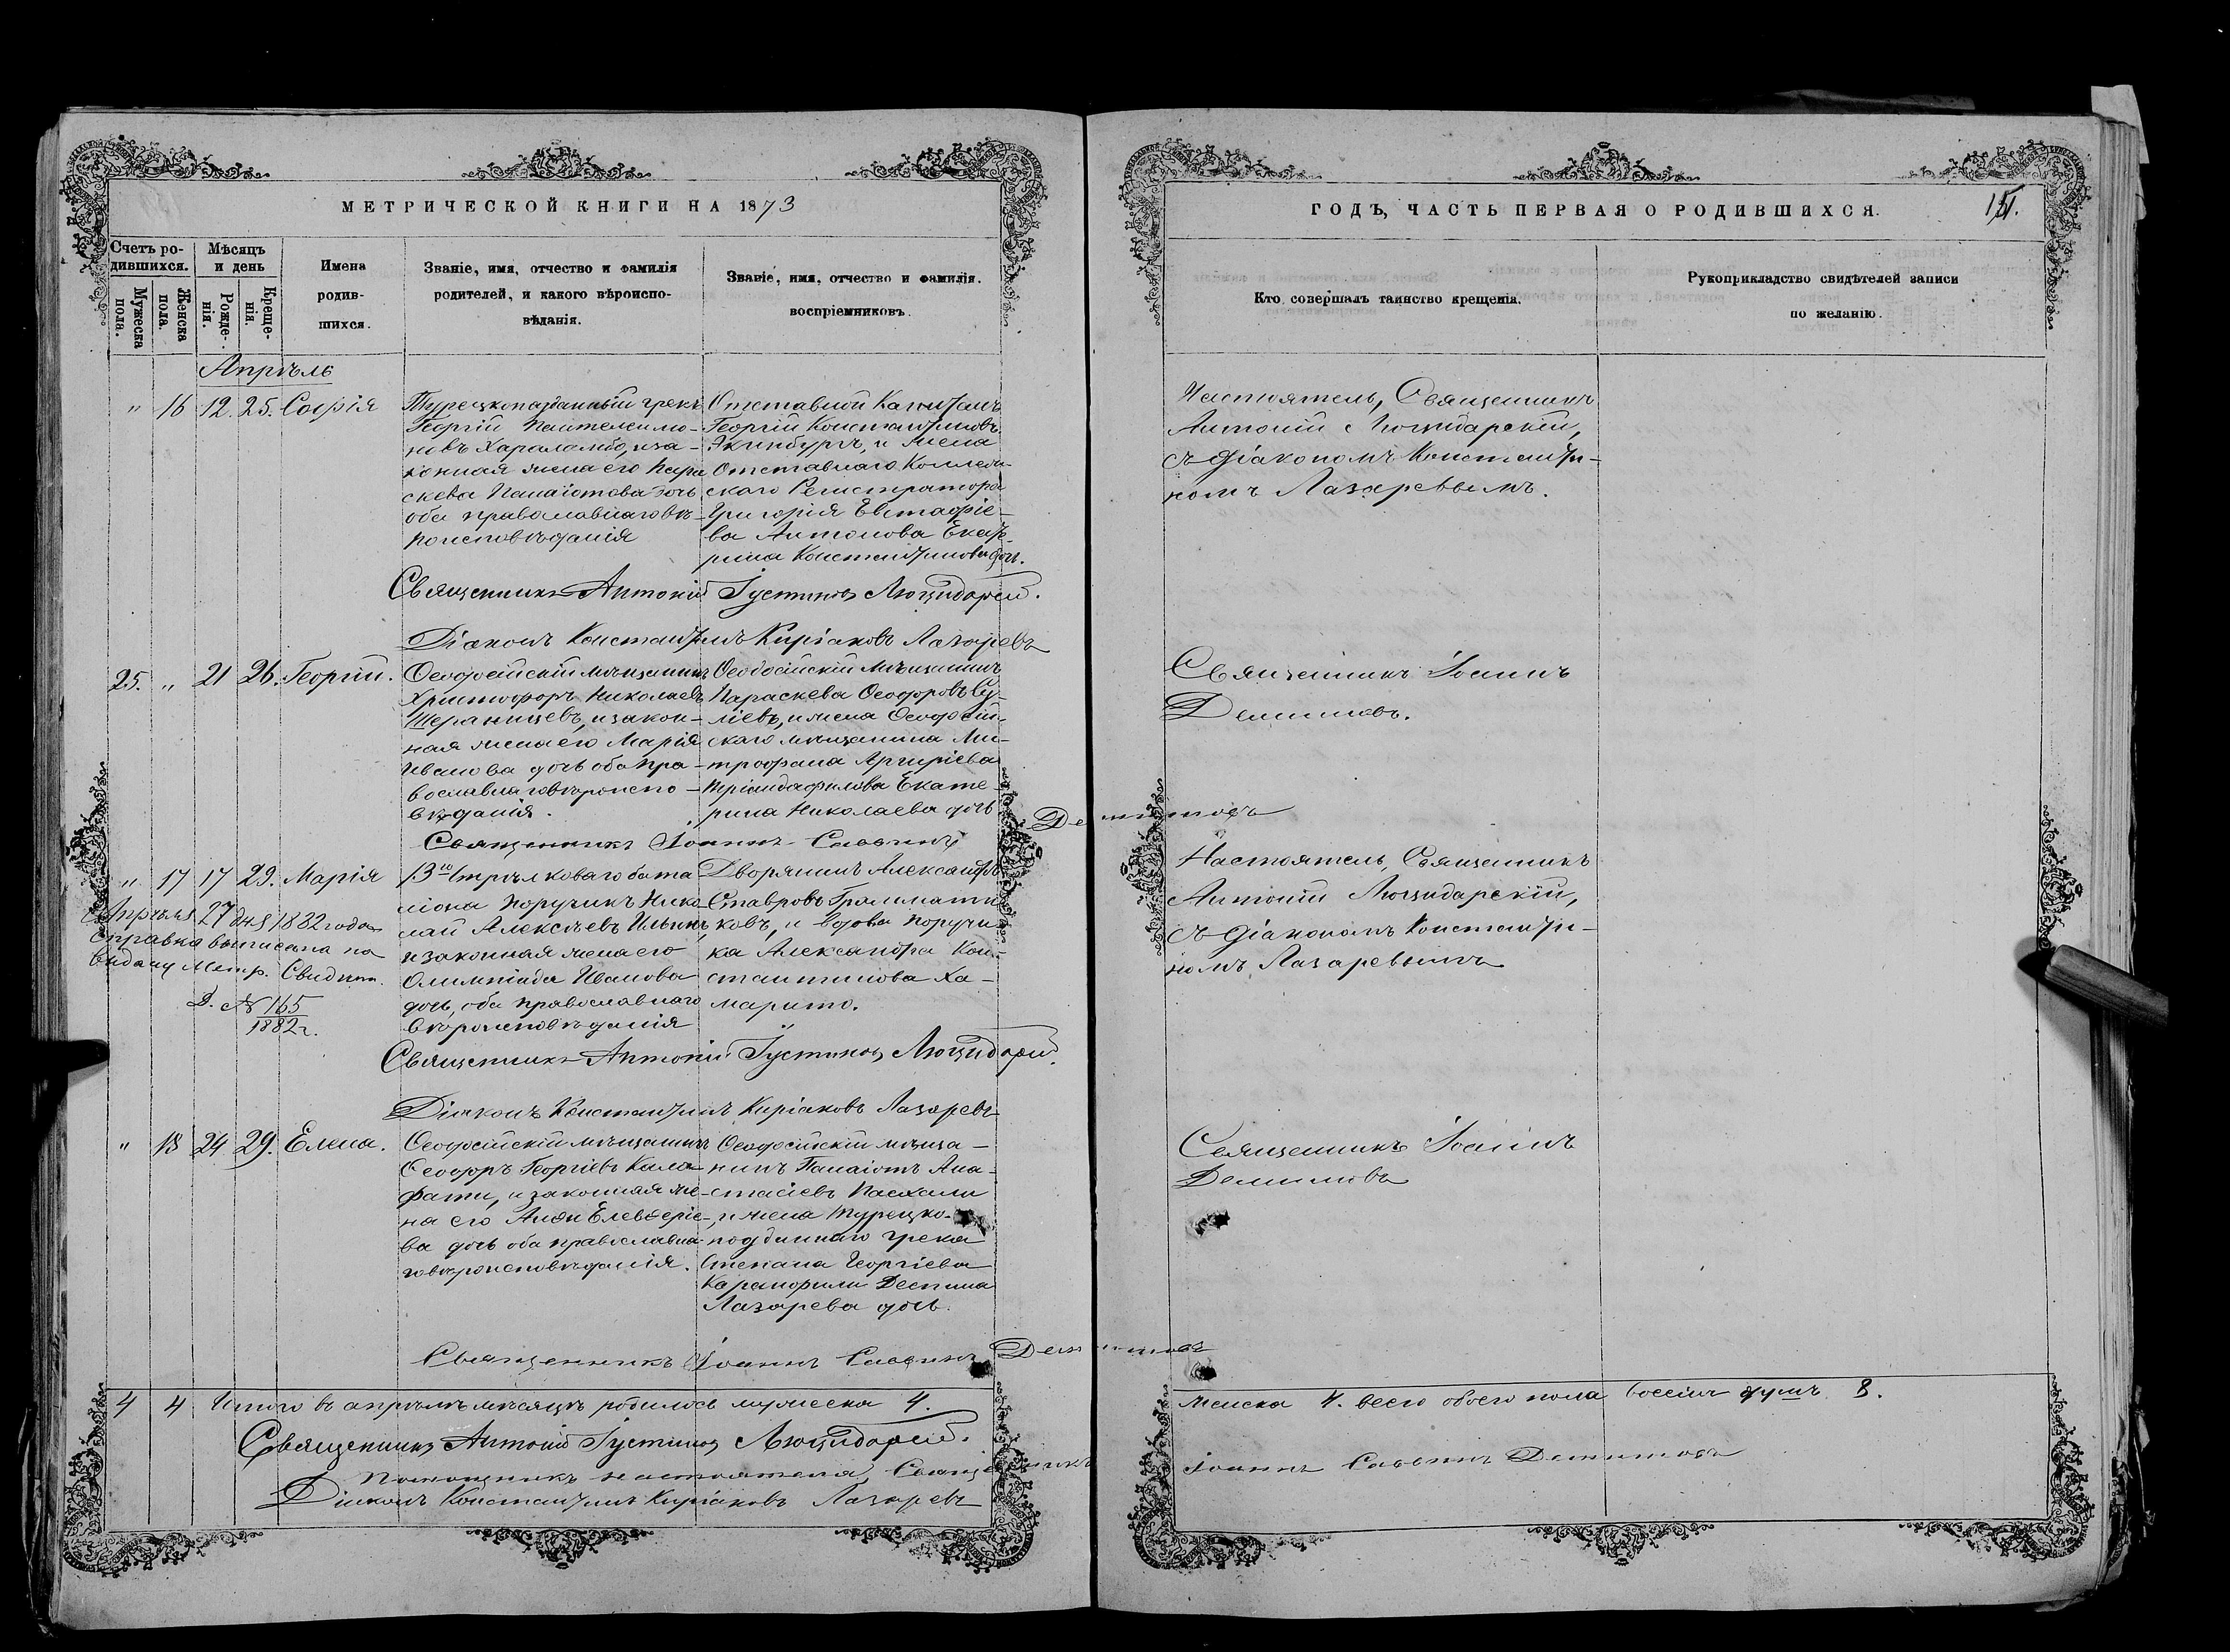 МЕТРИЧЕСКОЙ КНИГИ НА 1873
ГОДЪ, ЧАСТЬ ПЕРВАЯ О РОДИВШИХСЯ.
Счетъ родившихся.
Мужеска пола.
Женска пола.
Мѣсяцъ и день
Рожденія.
Крещенія.
Имена
родив-
шихся.
Званіе, имя, отчество и фамилія
родителей, и какого вѣроиспо-
вѣданія.
Званіе, имя, отчество и фамилія.
воспріемниковъ.
Кто совершалъ таинство крещенія.
Рукоприкладство свидѣтелей записи
по желанію.
Апрѣль
" 16 12. 25. Софія
Турецкоподданный грекъ
Георгій Пантелеимо-
новъ Хараламбо, и за-
конная жена его Пара
скева Панаіотова дочь
оба православнаго вѣ-
роисповѣданія
Отставной Капитанъ
Георгій Константиновъ
и жена
Отставнаго Коллеж-
скаго Регистратора
Григорія Евстафіе-
ва Антонова Екате-
рина Константинова дочь.
Настоятель, Священникъ
Антоній Люцидарскій,
съ діакономъ Константи-
номъ Лазаревымъ.
Священникъ Антоній Іустиновъ Люцидарскій.
Діаконъ Константинъ Киріаковъ Лазаревъ
25. " 21 26. Георгій.
Ѳеодосійскій мѣщанинъ
Христофоръ Николаевъ
и закон-
ная жена его Марія
Иванова дочь оба пра-
вославнаго вѣроиспо-
вѣданія.
Ѳеодосійскій мѣщанинъ
Параскева Ѳеодоровъ Су-
ліевъ, и жена Ѳеодосій-
скаго мѣщанина Ми-
трофана Аргиріева
Тріандафилова Екате-
рина Николаева дочь
Священникъ Іоаннъ
Демиповъ.
Священникъ Іоаннъ Саввинъ
" 17 17 29. Марія
13го Стрѣлковаго бата
ліона поручикъ Нико
лай Алексѣевъ Ильинъ,
и законная жена его
Олимпіада Иванова
дочь, оба православнаго
вѣроисповѣданія
Дворянинъ Александръ
Ставровъ Граммати
ковъ, и вдова поручи
ка Александра Кон-
стантинова Ха-
марито.
Апрѣля 27 дня 1882 года
справка выписана на
выдачу Метр. Свидѣт.
Д. № 165
1882 г.
Настоятель, Священникъ
Антоній Люцидарскій,
съ діакономъ Константи-
номъ Лазаревымъ
Священникъ Антоній Іустиновъ Люцидарскій.
Діаконъ Константинъ Киріаковъ Лазаревъ
" 18 24 29. Елена.
Ѳеодосійскій мѣщанинъ
Ѳеодоръ Георгіевъ Кала
фати, и законная же-
на его Анна Елевѳеріе-
ва дочь оба православна-
го вѣроисповѣданія.
Ѳеодосійскій мѣща-
нинъ Панаіотъ Ана-
стасіевъ Пасхали
, и жена турецко-
подданнаго грека
Степана Георгіева
Карамфили Деспина
Лазарева дочь.
Священникъ Іоаннъ
Священникъ Іоаннъ Саввинъ
4 4 Итого въ апрѣлѣ мѣсяцѣ родилось мужеска 4.
женска 4. всего обоего пола восемь душъ 8.
Священникъ Антоній Іустиновъ Люцидарскій.
Помощникъ настоятеля, Священникъ
Іоаннъ Саввинъ
Діаконъ Константинъ Киріаковъ Лазаревъ